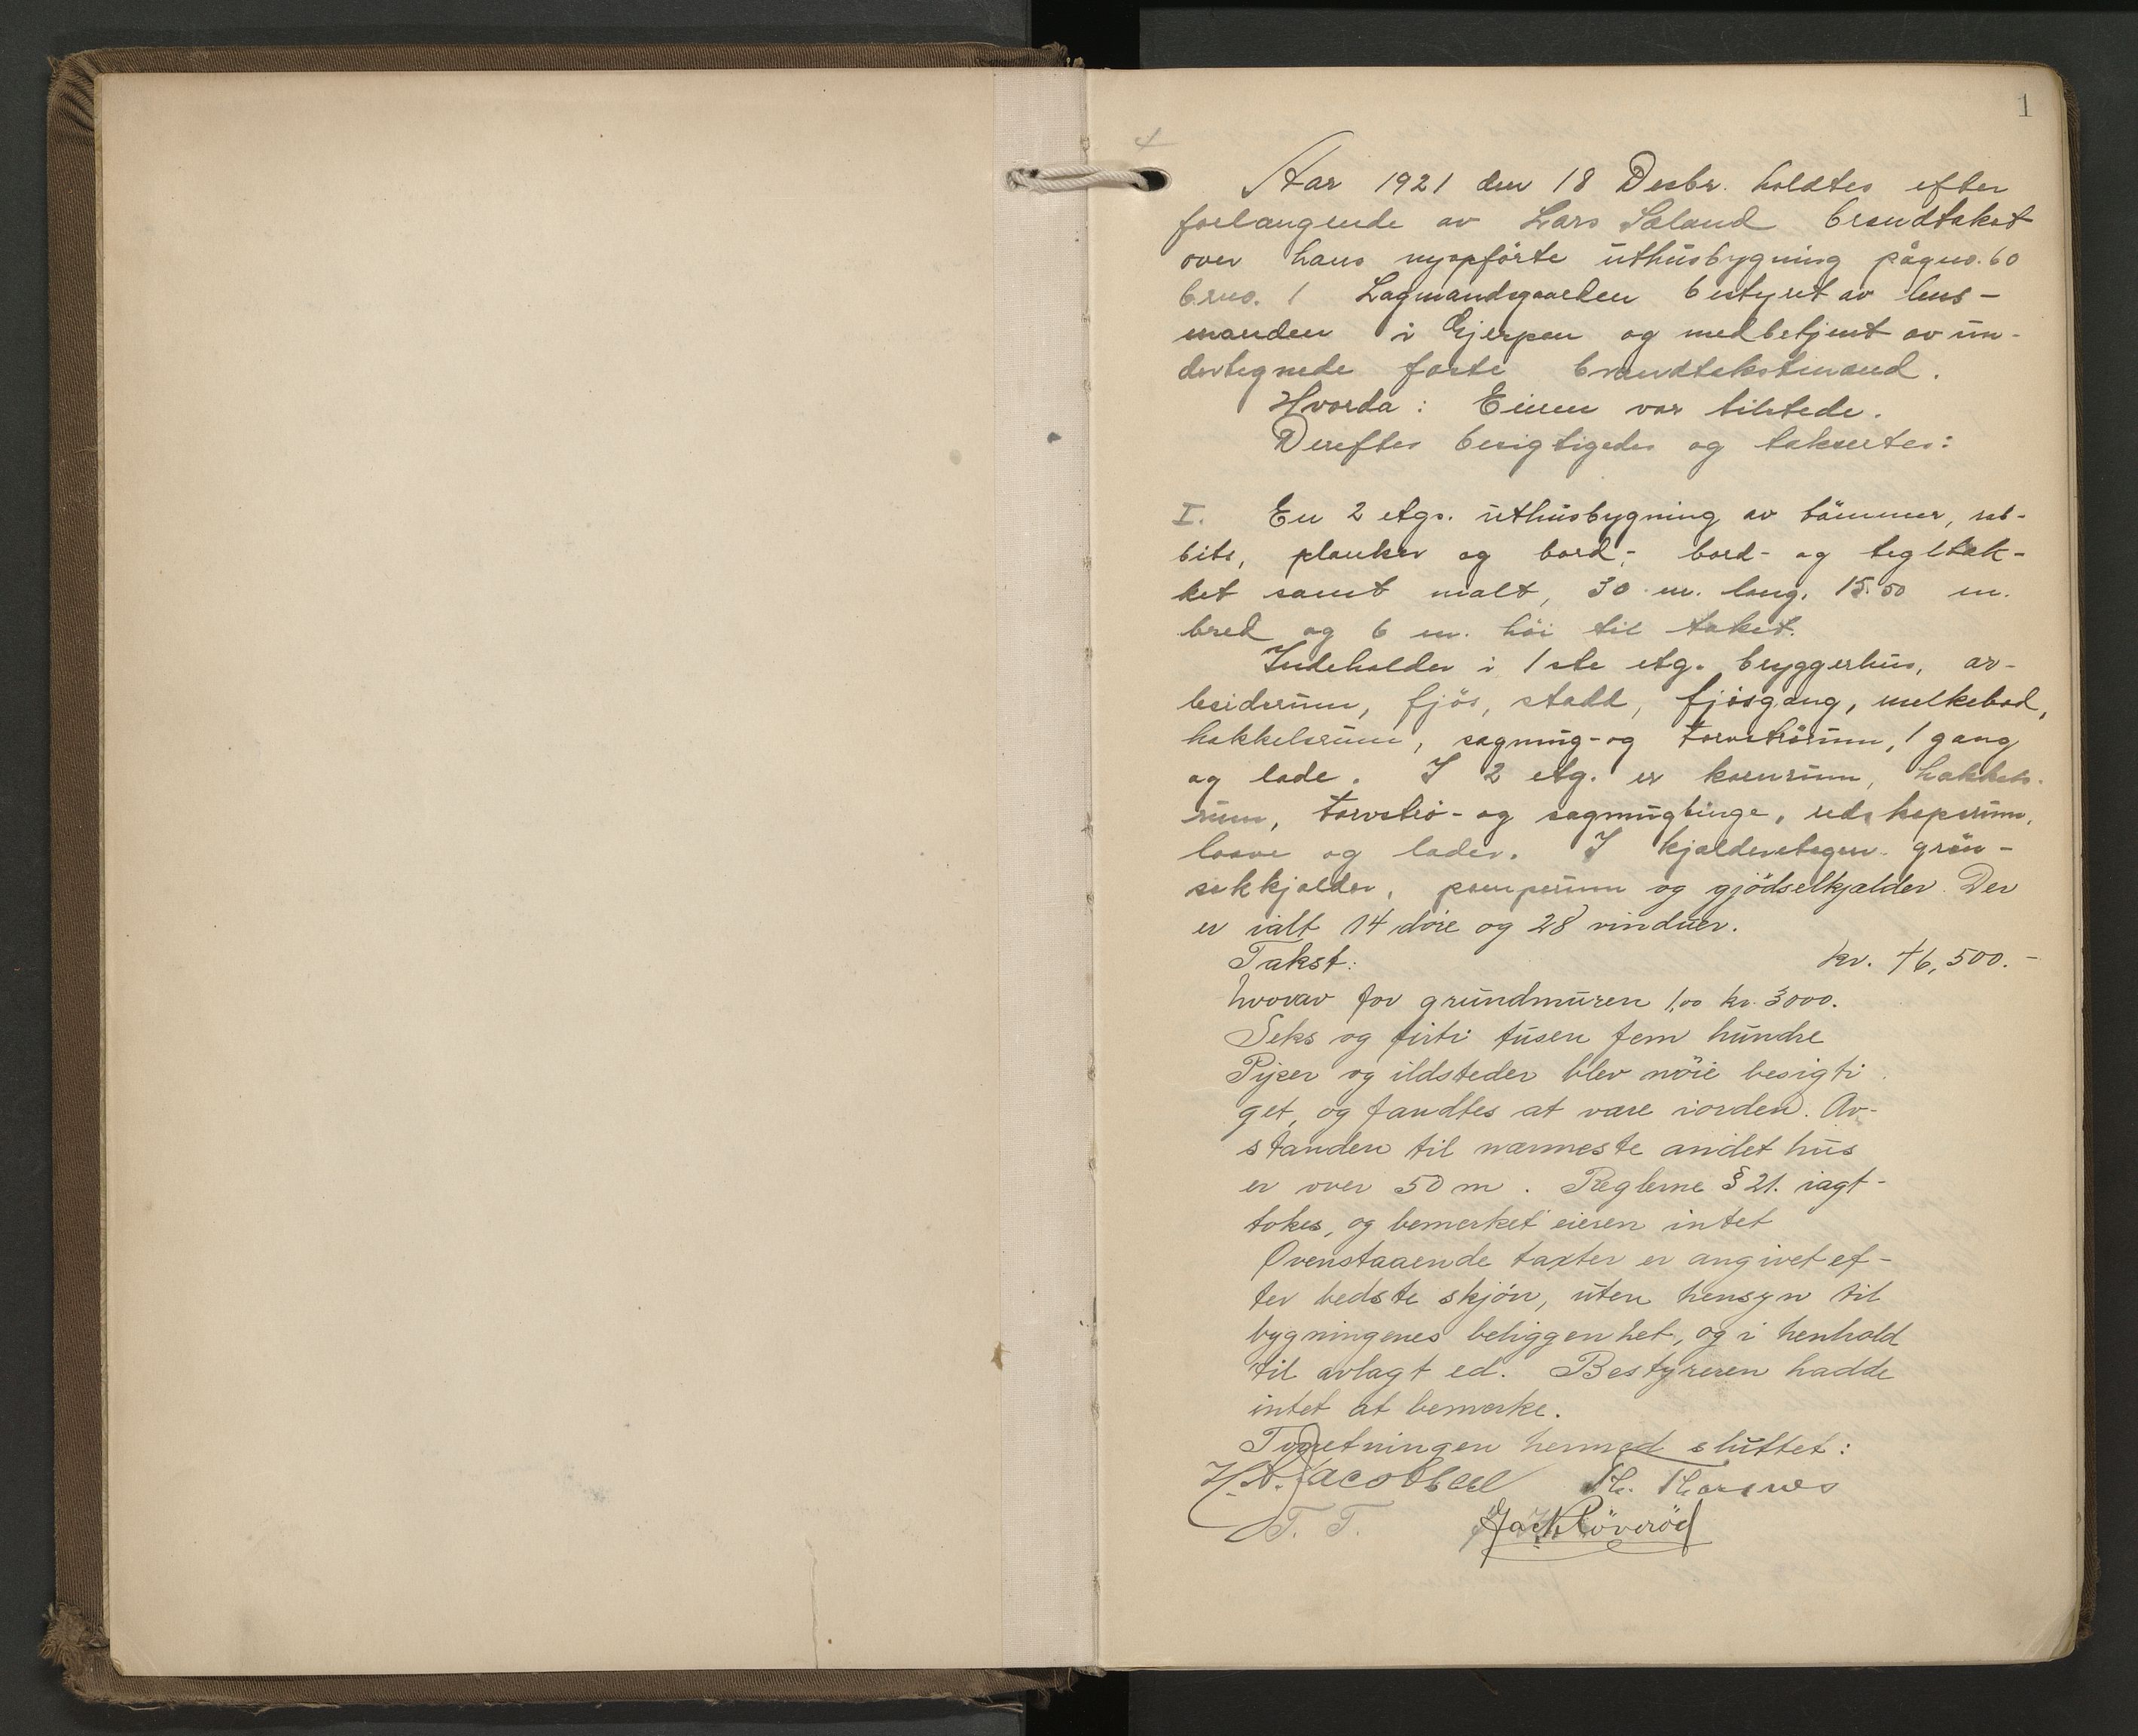 1
Aar 1921 den 18 Desbr. holdtes efter
forlangende av Lars Saland brandtakst
over hans nyopførte uthusbygning på gno. 60
brno. 1 Lagmandsgaarden bestyret av lens-
manden i Gjerpen og medbetjent av un-
dertegnede faste brandtakstmænd.
Hvorda: Eieren var tilstede.
Derefter besigtigedes og takseredes:
I. En 2 etgs. uthusbygning av tömmer, reis-
bits, planker og bord-, bord- og tegltæk-
ket samt malt, 30 m. lang, 15.50 m.
bred og 6 m. höi til taket.
Indeholder i 1ste etg. bryggerhus, ar-
beidsrum, fjös, stald, fjösgang, melkebod,
hakkelsrum, sagmug- og torvströrum, 1 gang
og lade. I 2 etg. er kornrum, hakkels-
rum, torvströ- og sagmugbinge, redskapsrum,
laave og lader. I kjælderetagen grön-
sakkjælder, pumperum og gjödselkjælder. Der
er ialt 14 döre og 28 vinduer.
Takst: kr. 46,500.-
hvorav for grundmuren 1,00 kr. 3000.
Seks og firti tusen fem hundre
Piper og ildsteder blev nöie besigti
get, og fandtes at være iorden. Av-
standen til nærmeste andet hus
er over 50 m. Reglerne § 21. iagt-
tokes, og bemerket eieren intet
Ovenstaaende taxter er angivet ef-
ter bedste skjön, uten hensyn til
bygningenes beliggenhet, og i henhold
til avlagt ed. Bestyreren hadde
intet at bemerke.
Forretningen hermed sluttet:
H. A. Jacobsen Th. Thorsnes
T. T. Jack Röveröd